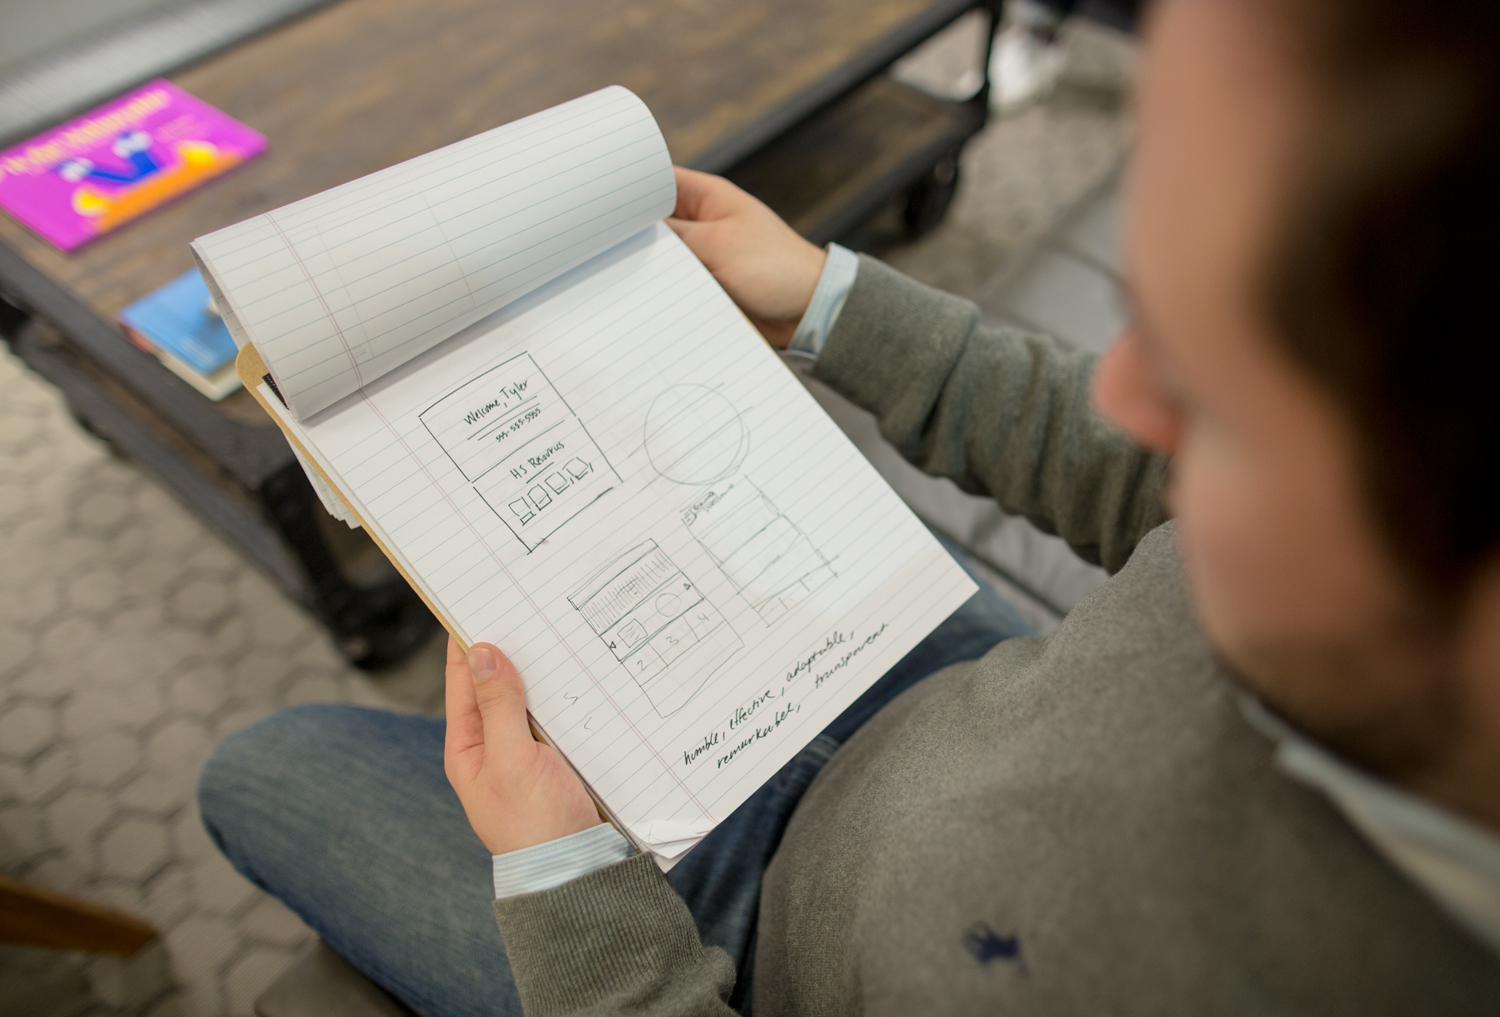 Welcome, Tyler
555-555-5555
HS Resources
2 3 4
humble, effective, adaptable,
remarkabel, transparent